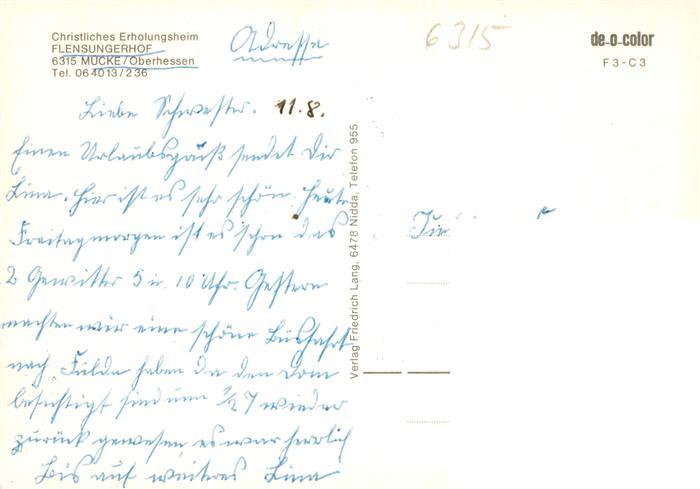 Christliches Erholungsheim
FLENSUNGERHOF
6315 MÜCKE/Oberhessen
Tel. 064013/236
Adresse
6315
de-o-color
F3-C3
Liebe Schwester. 11.8.
Einen Urlaubsgruß sendet Dir
Lina. Hier ist es sehr schön, heute
Freitagmorgen ist es schon das
2 Gewitter 5 u. 10 Uhr. Gestern
machten wir eine schöne Busfahrt
nach Fulda haben da den Dom
besichtigt sind um 1/2 7 wieder
zurück gewesen, es war herrlich
Bis auf weiteres Lina
Verlag Friedrich Lang, 6478 Nidda, Telefon 955